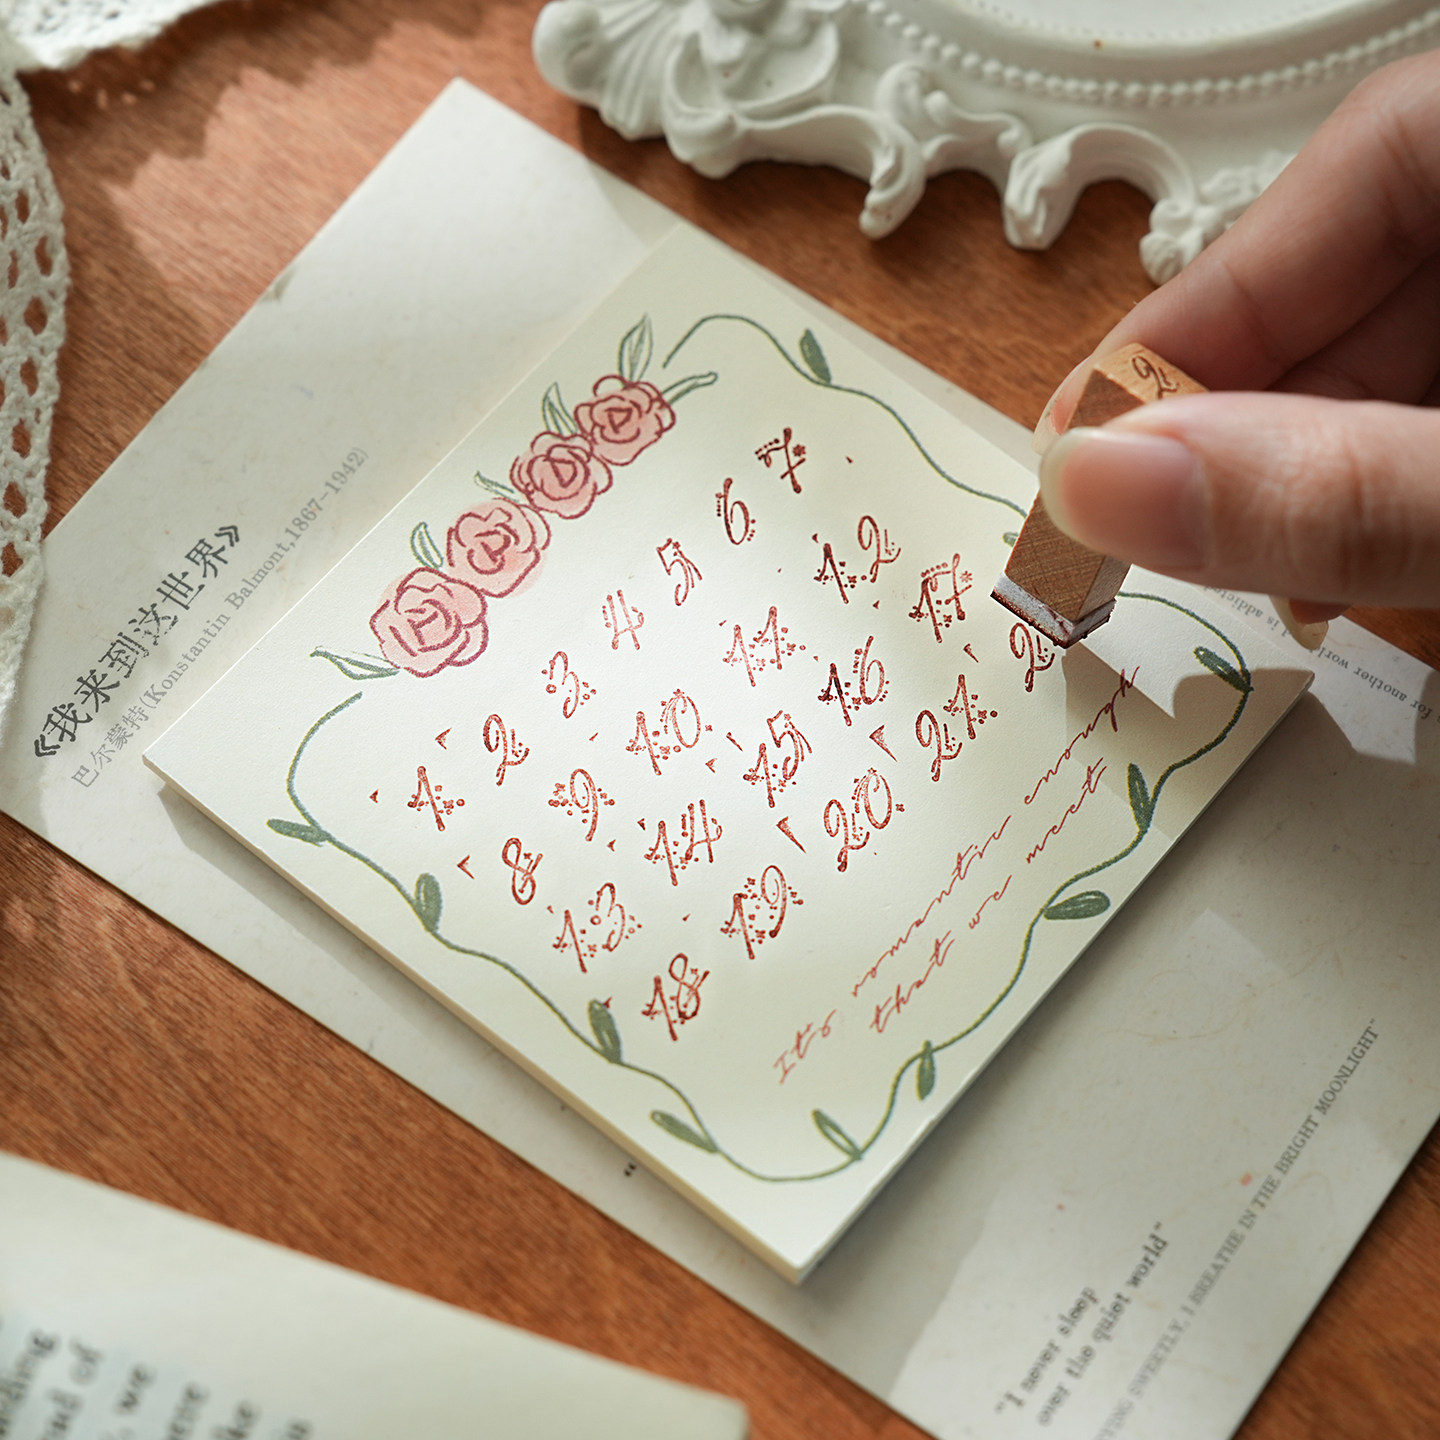 《我来到这世界》
巴尔蒙特(Konstantin Balmont,1867-1942)
1 2 3 4 5 6 7
8 9 10 11 12
13 14 15 16 17
18 19 20 21 2
2
It's romantic enough
that we meet
is addicted
for another world
"I never sleep
over the quiet world"
SWEETLY, I BREATHE IN THE BRIGHT MOONLIGHT"
and of
we